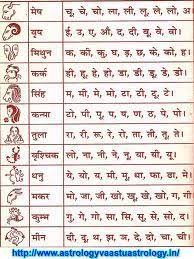 मेष चू, चे, चो, ला, ली, लू, ले, लो, अ.
वृष ई, उ, ए, औ, द, दी, वू, वे, वो.
मिथुन क, की, कु, घ, ङ, छ, के, को, ह.
कर्क ही, हू, हे, हो, डा, डी, डू, डे, डो.
सिंह म, मी, मू, मे, मो, टा, टी, टू, टे.
कन्या टो, प, पी, पू, ष, ण, ठ, पे, पो.
तुला रा, री, रू, रे, रो, ता, ती, तू, ते.
वृश्चिक लो, ना, नी, नू, ने, या, यी, यू.
धनु ये, यो, भ, भी, भू, ध, फ, ढ, भे.
मकर भो, ज, जी, खी, खू, खे, खो, ग, गी.
कुम्भ गु, गे, गो, सा, सि, सू, से, सो, द.
मीन दी, दू, थ, झ, ञ, दे, दो, चा, ची.
http://www.astrologyvaastuastrology.in/